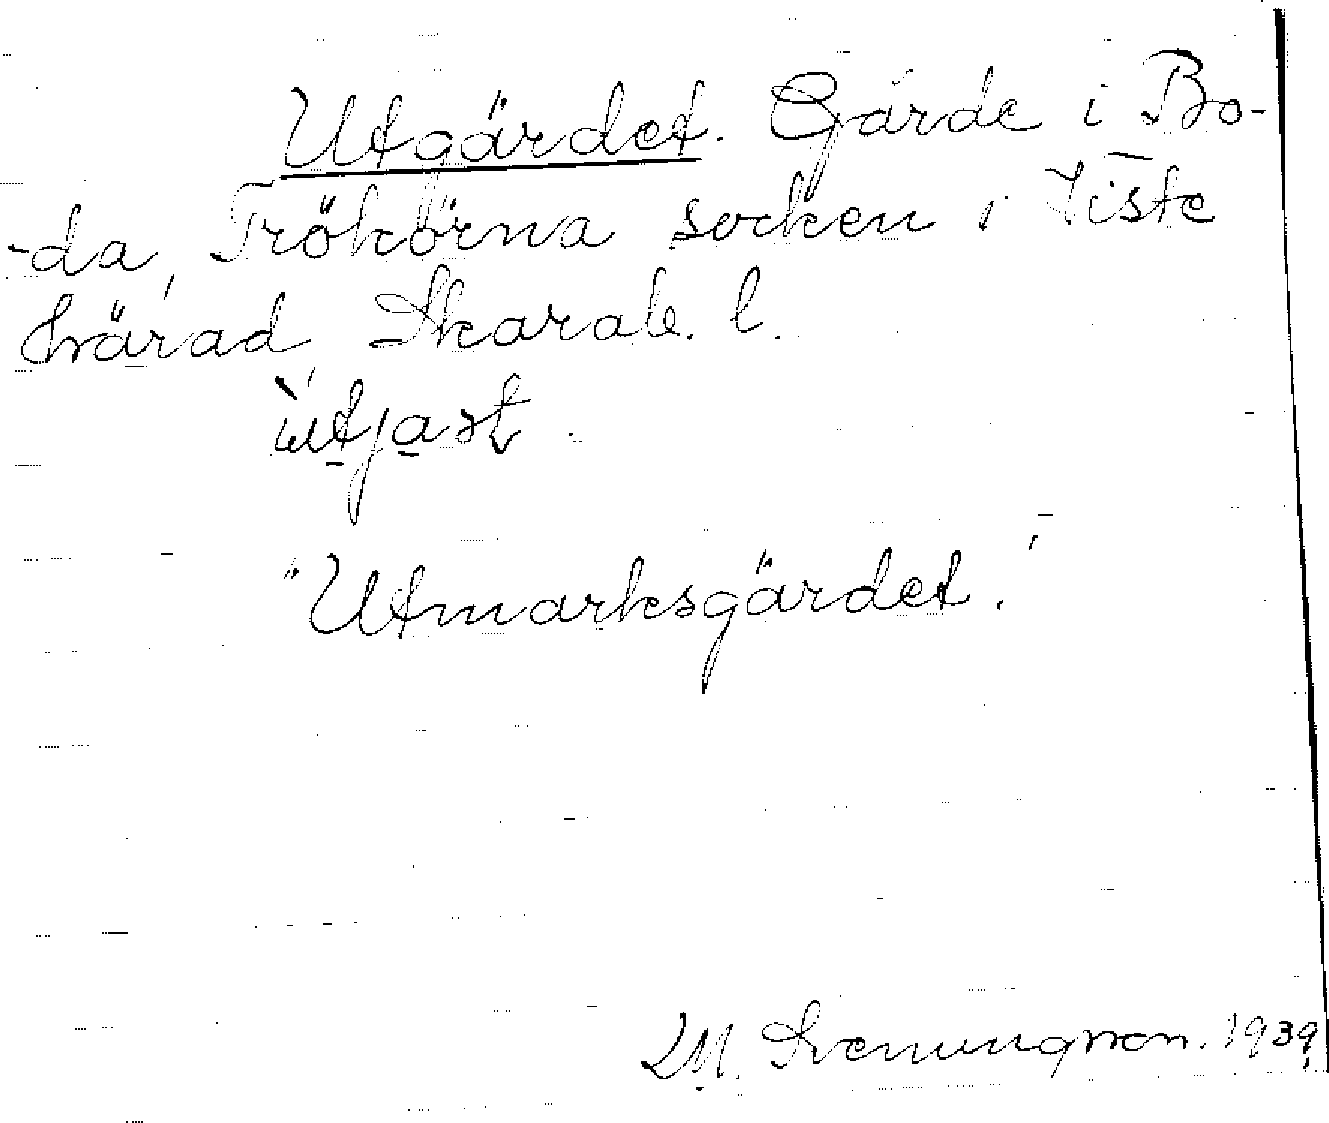 Utgärdet. Gärde i Bo-
-da, Trökörna socken i Viste
härad Skarab. l.
ùtjast.
"Utmarksgärdet."
M. Svenungsson. 1939